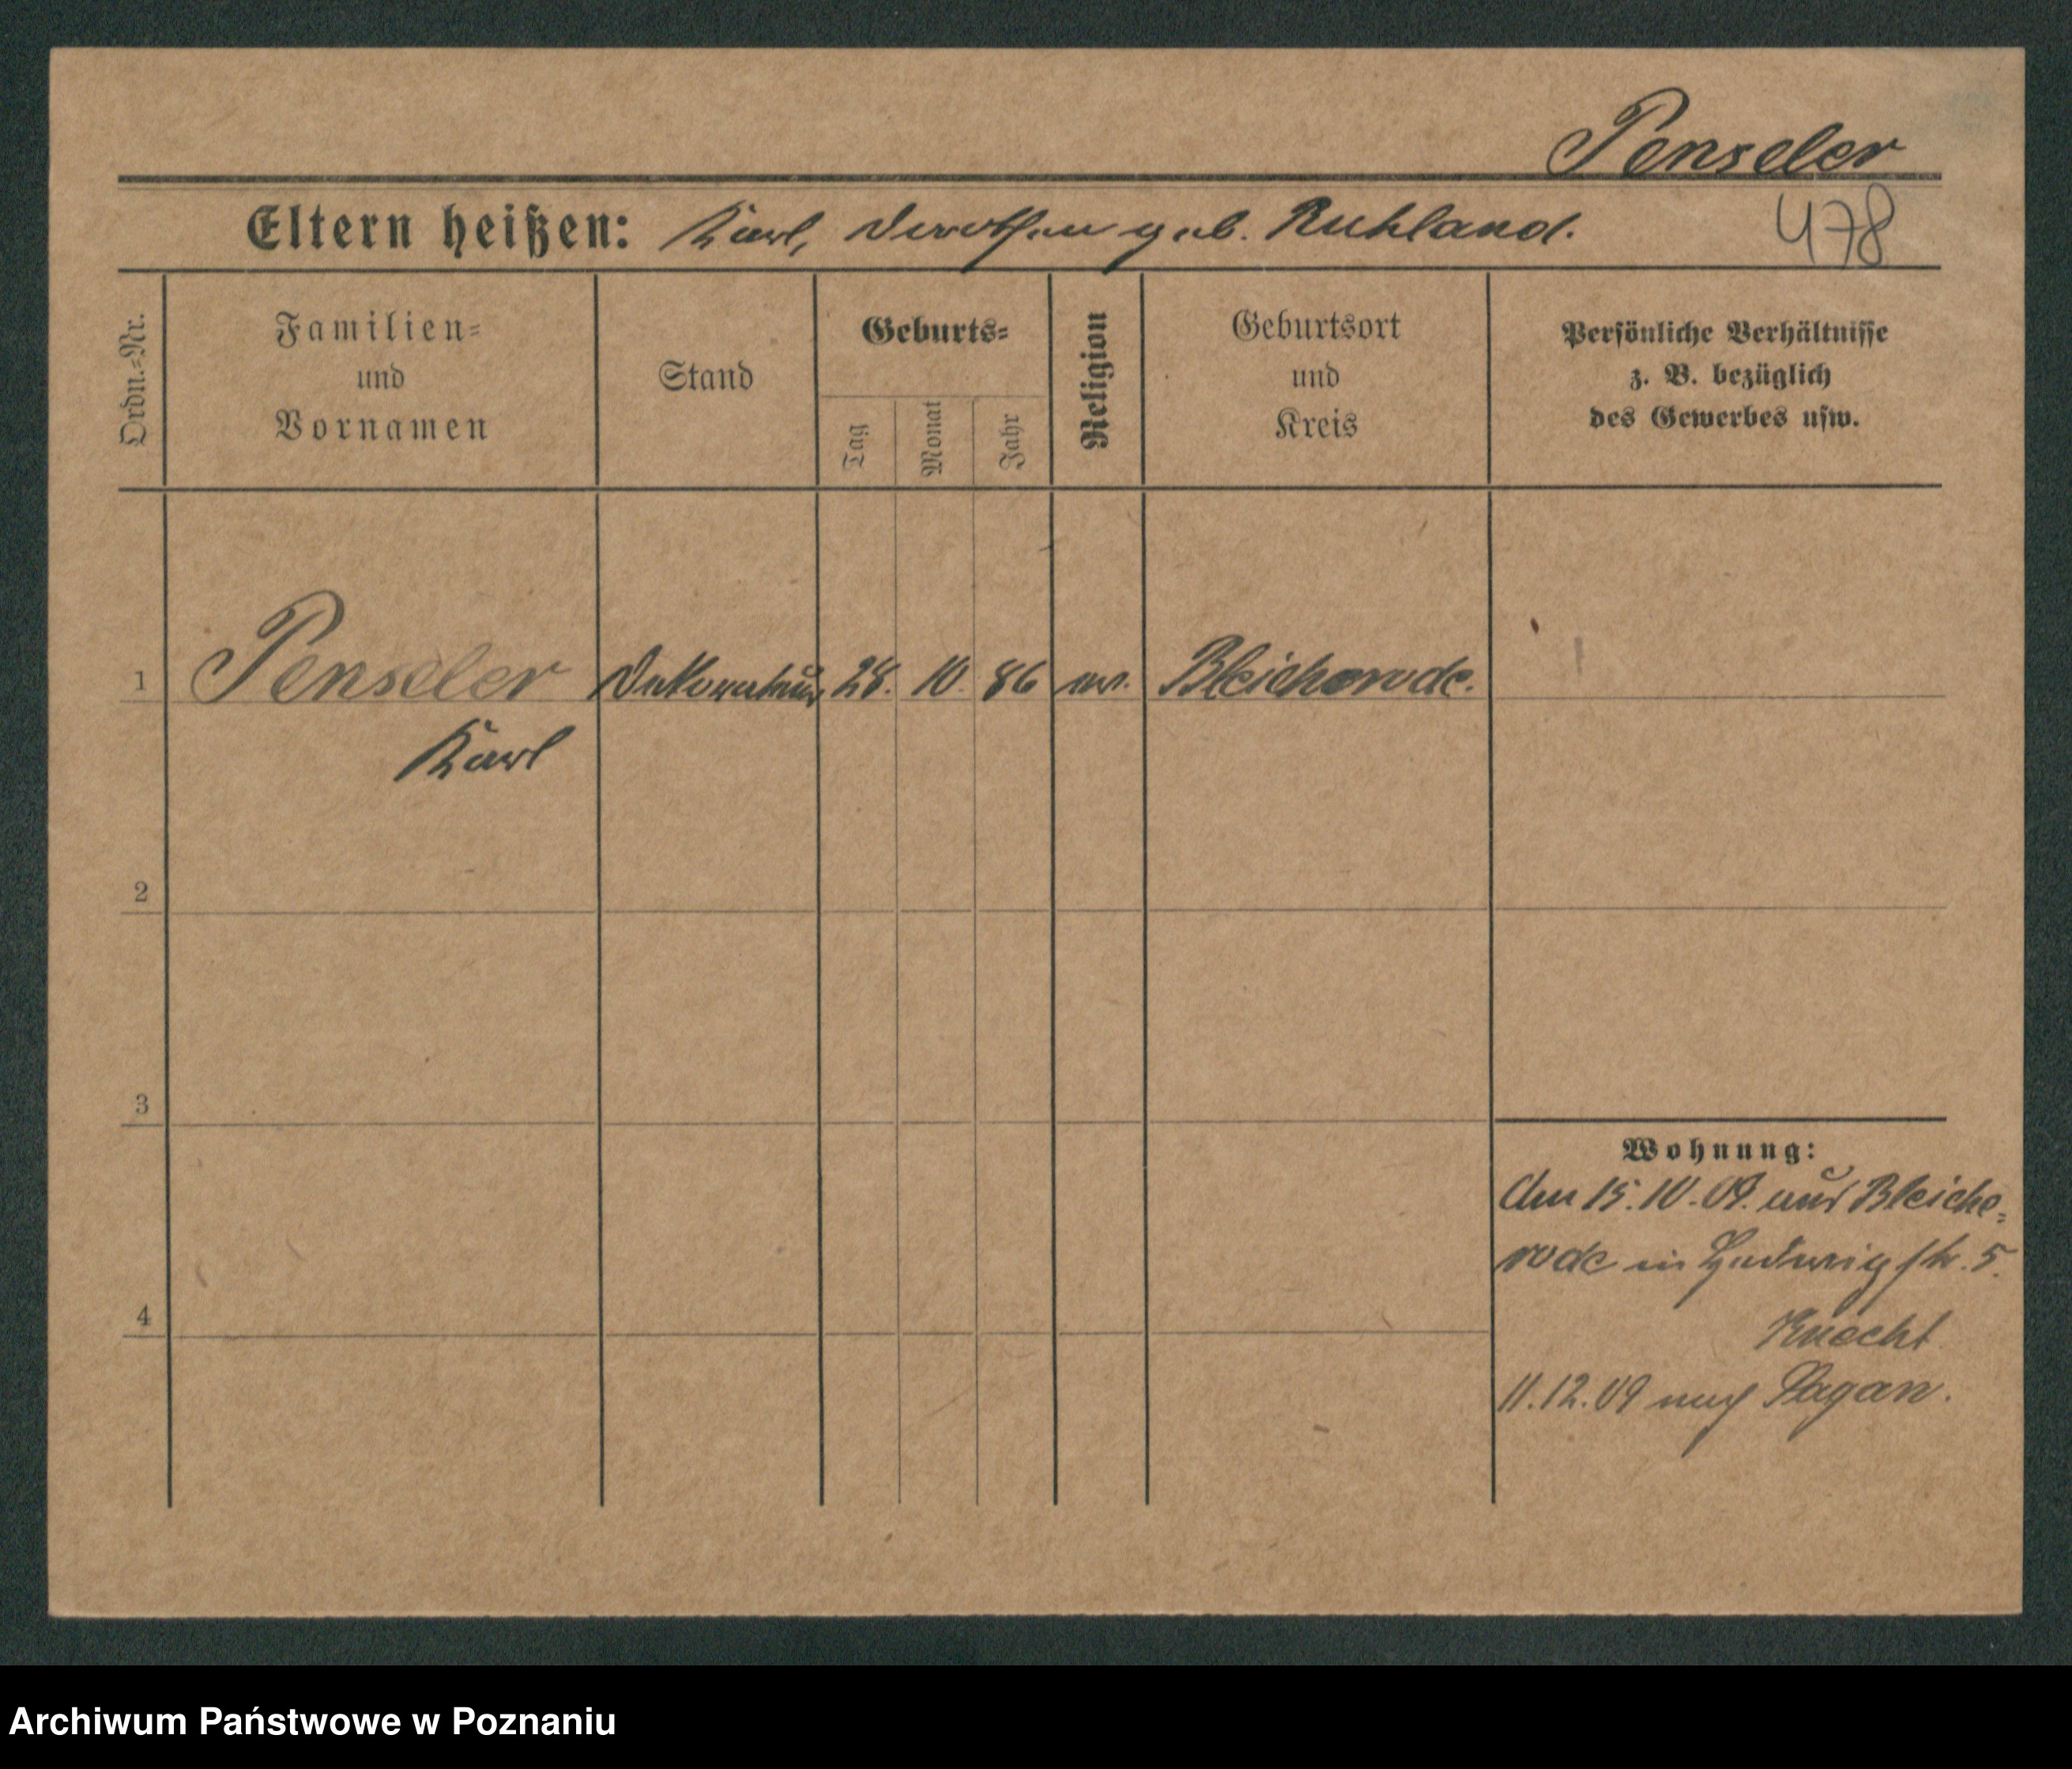 Penseler
Eltern heißen: Karl, Dorothea geb. Ruhland.
478
Ordn.=Nr.
Familien=
und
Vornamen
Stand
Geburts=
Tag
Monat
Jahr
Religion
Geburtsort
und
Kreis
Persönliche Verhältnisse
z. B. bezüglich
des Gewerbes usw.
1 Penseler Dekorateur 28. 10. 86 ev. Bleicherode.
Karl
2
3
4
Wohnung:
Am 15.10.09. aus Bleiche=
rode in Hedwigstr. 5.
Knecht
11.12.09 nach Sagan.
Archiwum Państwowe w Poznaniu